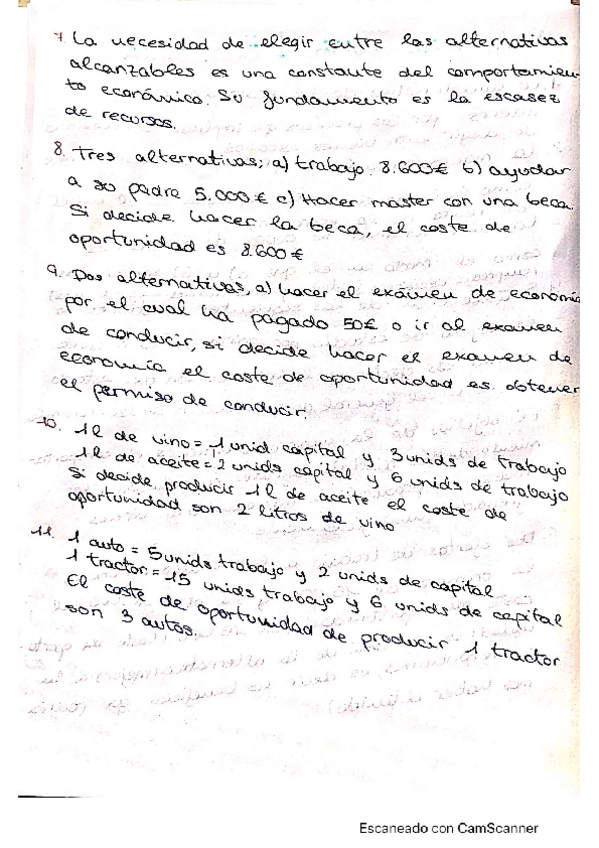 7. La necesidad de elegir entre las alternativas
alcanzables es una constante del comportamien-
to económico. Su fundamento es la escasez
de recursos.
8. Tres alternativas; a) trabajo 8.600€ b) ayudar
a su padre 5.000€ c) Hacer master con una beca.
Si decide hacer la beca, el coste de
oportunidad es 8.600€
9. Dos alternativas, a) hacer el exámen de economía
por el cual ha pagado 50€ o ir al examen
de conducir, si decide hacer el examen de
economía el coste de oportunidad es obtener
el permiso de conducir.
10. 1l de vino = 1 unid capital y 3 unids de trabajo
1l de aceite = 2 unids capital y 6 unids de trabajo
Si decide producir 1l de aceite el coste de
oportunidad son 2 litros de vino
11. 1 auto = 5 unids trabajo y 2 unids de capital
1 tractor = 15 unids trabajo y 6 unids de capital
El coste de oportunidad de producir 1 tractor
son 3 autos.
Escaneado con CamScanner